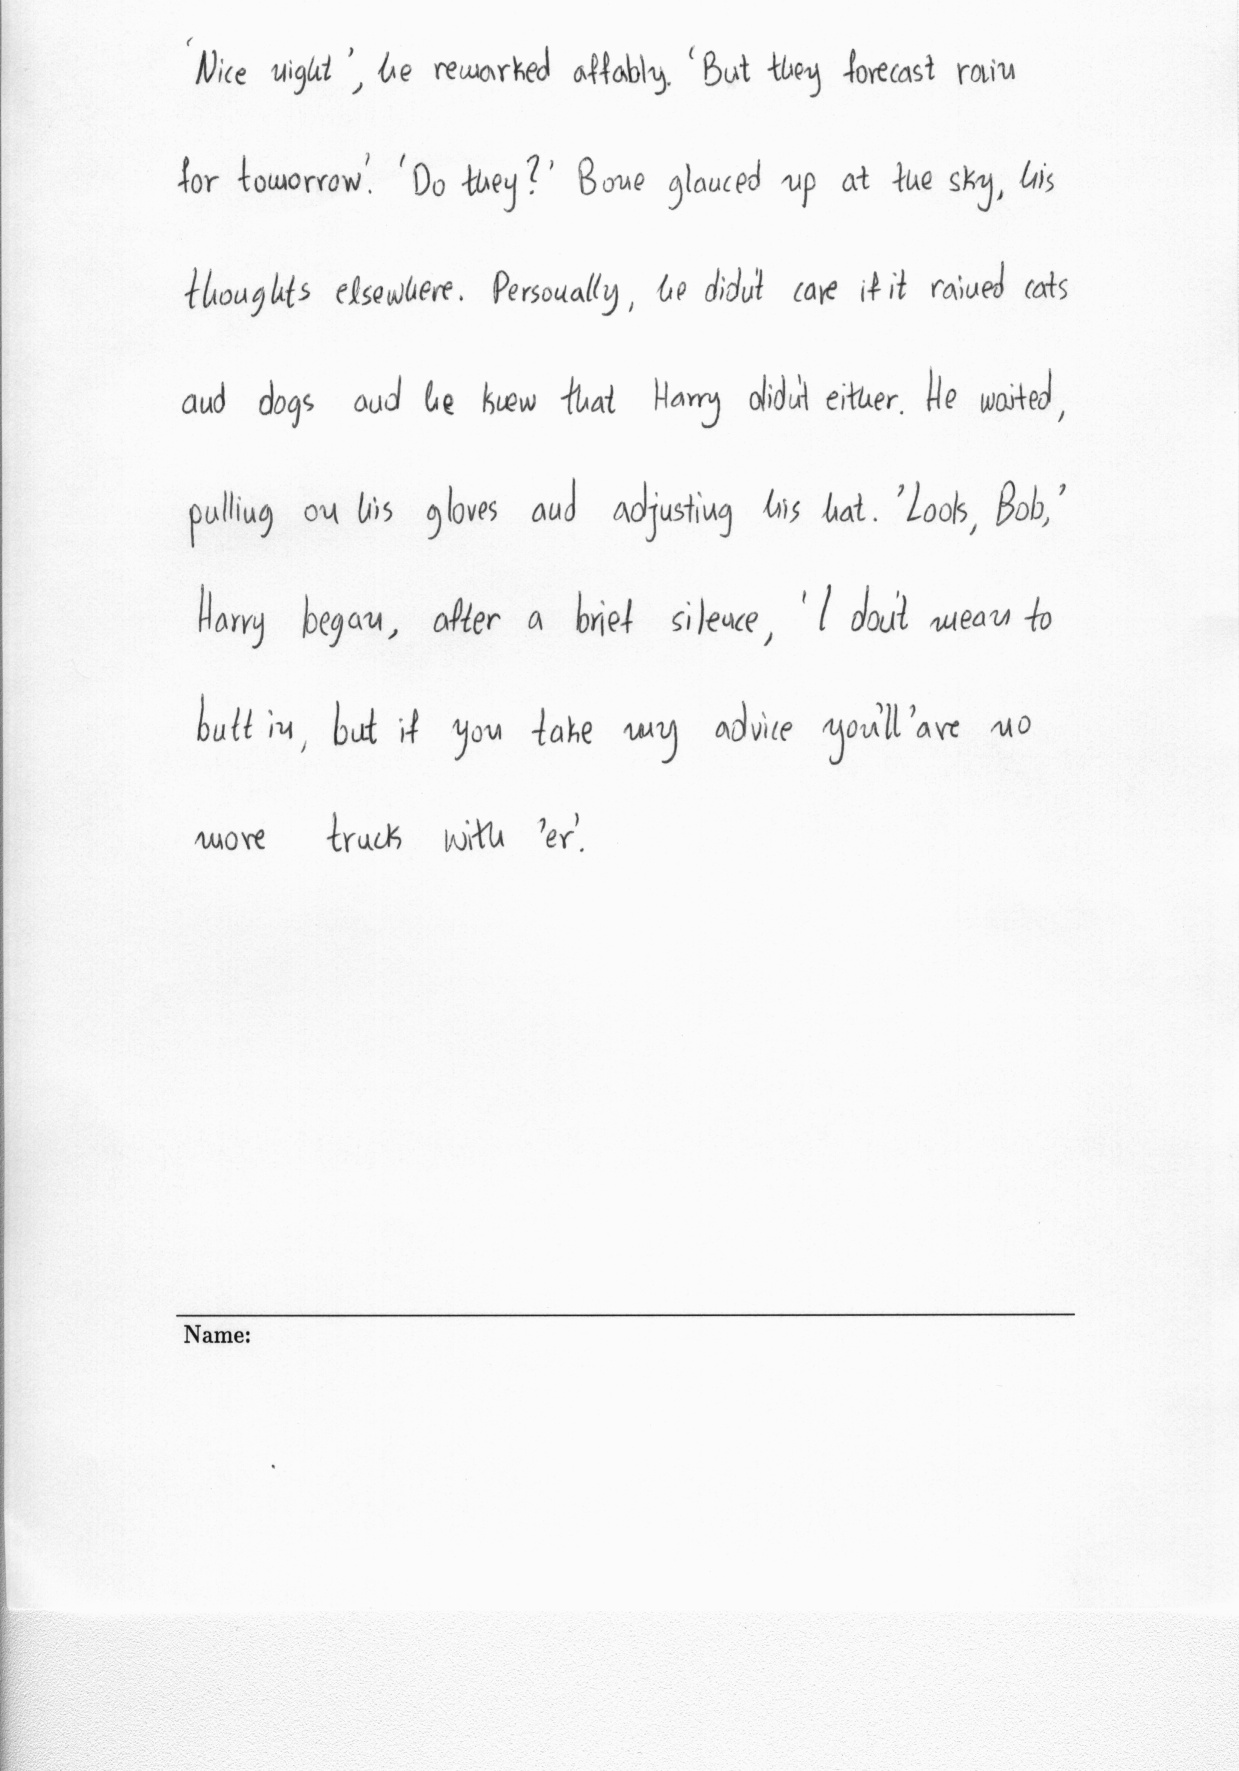 'Nice night', he remarked affably. 'But they forecast rain
for tomorrow'. 'Do they?' Bone glanced up at the sky, his
thoughts elsewhere. Personally, he didn't care if it rained cats
and dogs and he knew that Harry didn't either. He waited,
pulling on his gloves and adjusting his hat. 'Look, Bob,'
Harry began, after a brief silence, 'I don't mean to
butt in, but if you take my advice you'll 'ave no
more truck with 'er'.
Name: